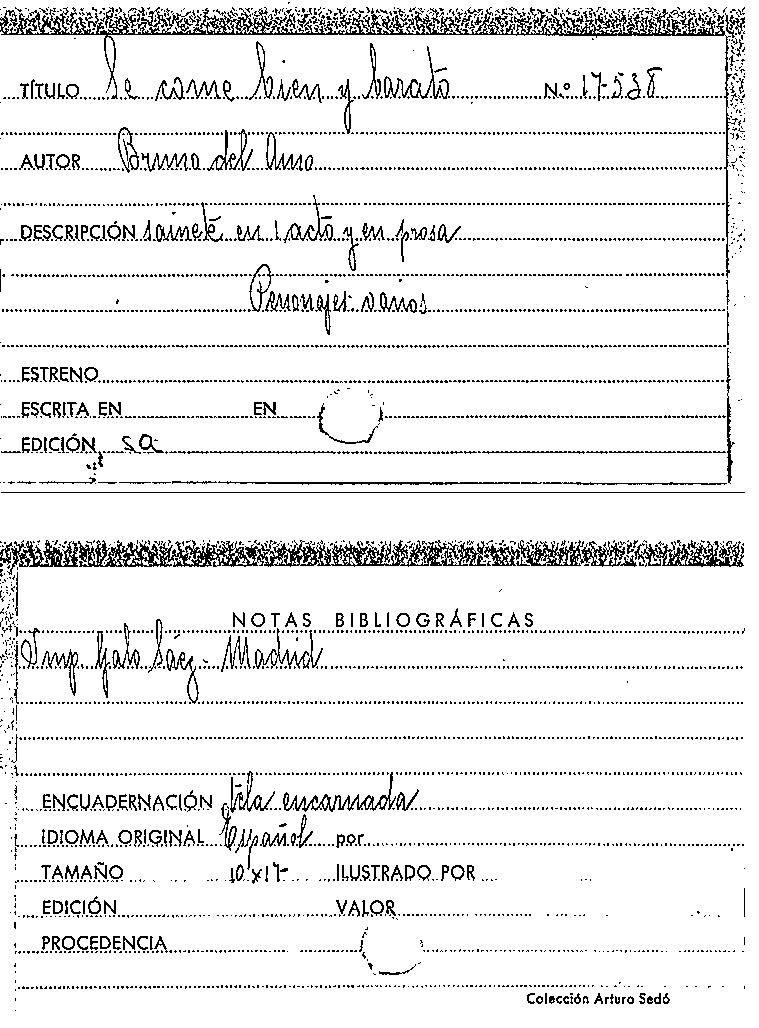 TÍTULO Se come bien y barato N.º 17-538
AUTOR Bruno del Amo
DESCRIPCIÓN sainete en 1 acto y en prosa
Personajes varios
ESTRENO
ESCRITA EN EN
EDICIÓN sa
NOTAS BIBLIOGRÁFICAS
Imp. Galo Sáez - Madrid
ENCUADERNACIÓN tela encarnada
IDIOMA ORIGINAL Español por
TAMAÑO 10x17 ILUSTRADO POR
EDICIÓN VALOR
PROCEDENCIA
Colección Arturo Sedó